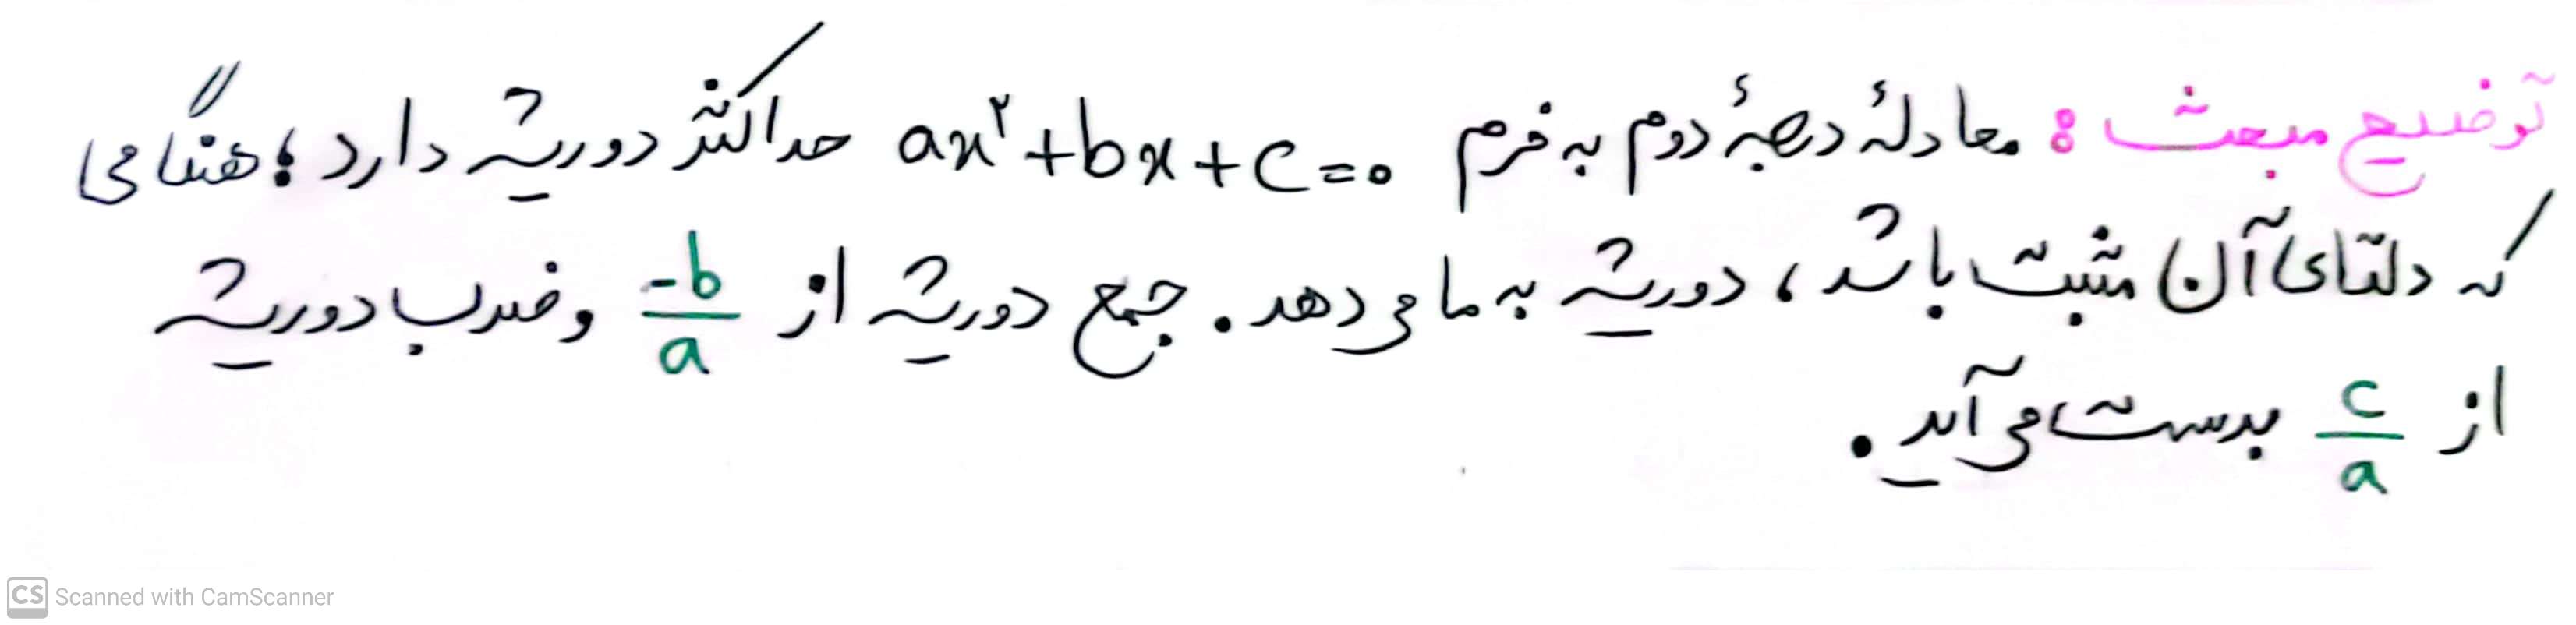 توضیح مبحث: معادلهٔ درجهٔ دوم به فرم ax²+bx+c=۰ حداکثر دو ریشه دارد؛ هنگامی
که دلتای آن مثبت باشد، دو ریشه به ما می‌دهد. جمع دو ریشه از -b/a و ضرب دو ریشه
از c/a بدست می‌آید.
CS Scanned with CamScanner